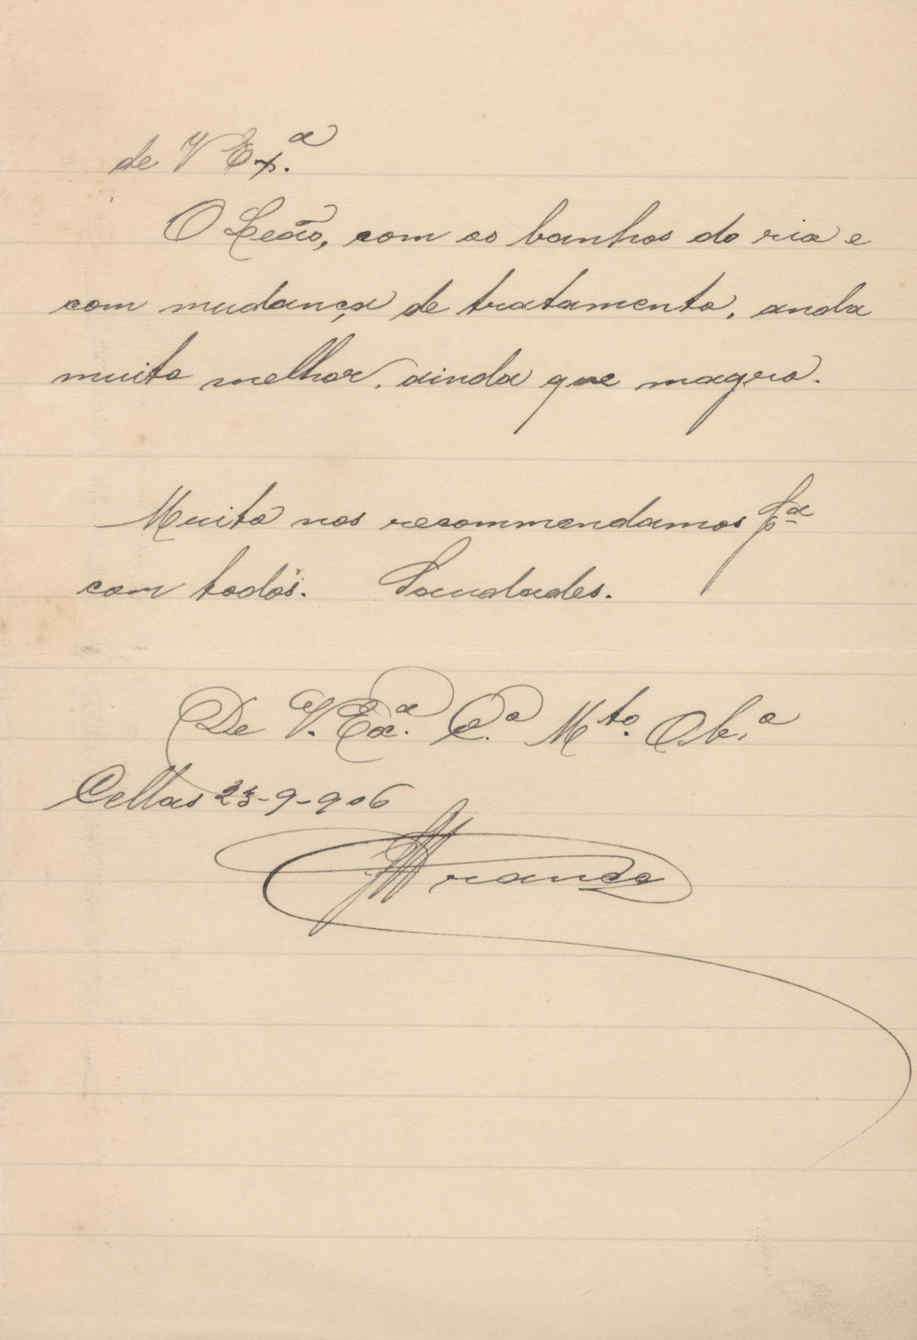 de V Ex.ª
O Leão, com os banhos do rio e
com mudança de tratamento, anda
muito melhor, ainda que magro.
Muito nos recommendamos pª
com todos. Saudades.
De V. Exª. C.º M.to Ob.º
Cellas 23-9-906